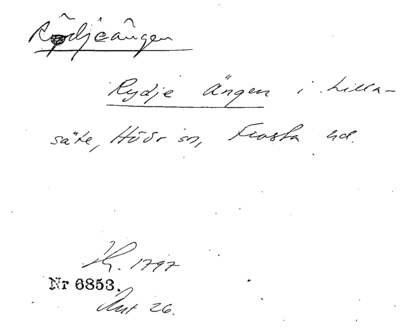 Rödjeängen
Rydje Ängen i Lilla-
säte, Höör sn, Frosta hd.
1797
Nr 6853.
26.